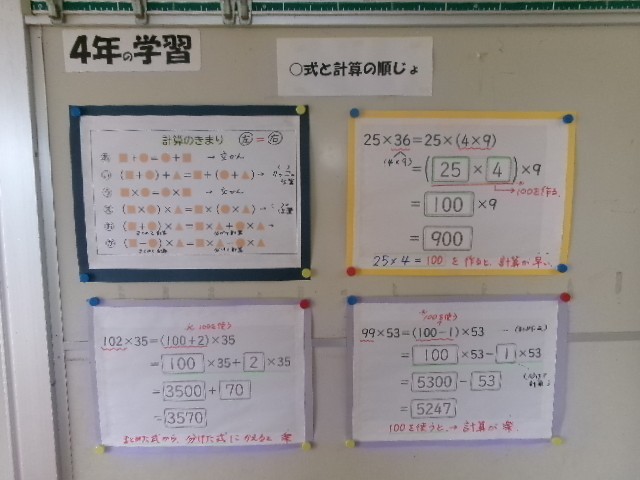 4年の学習
○式と計算の順じょ
計算のきまり 左=右
あ ■+●=●+■ →交かん
い (■+●)+▲=■+(●+▲)→
う ■×●=●×■ →交かん
え (■×●)×▲=■×(●×▲)→
お (■+●)×▲=■×▲+●×▲→
か (■-●)×▲=■×▲-●×▲
25×36=25×(4×9)
(4×9)
=(25×4)×9
→100を作る
=100×9
=900
25×4=100を作ると、計算が早い
100を使う
102×35=(100+2)×35
=100×35+2×35
=3500+70
=3570
まとめた式から、分けた式にかえると楽
100を使う
99×53=(100-1)×53
=100×53-1×53
=5300-53
=5247
100を使うと、→計算が楽